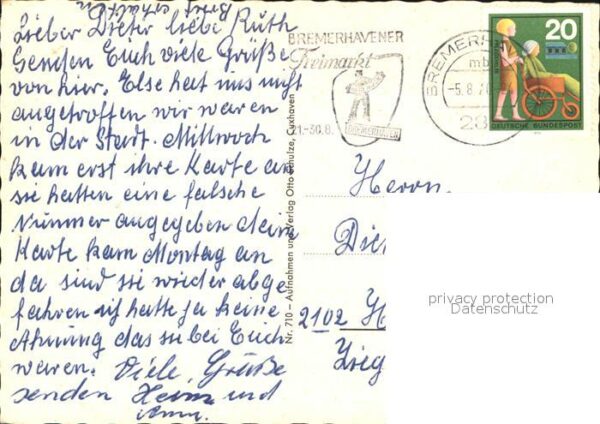 Lieber Dieter liebe Ruth
Senden Euch viele Grüße
von hier. Else hat uns nicht
angetroffen wir waren
in der Stadt. Mittwoch
kam erst ihre Karte an
sie hatten eine falsche
Nummer angegeben Meine
Karte kam Montag an
da sind sie wieder abge
fahren ich hatte ja keine
Ahnung das sie bei Euch
waren. Viele Grüße
senden Heinz und
BREMERHAVENER
Freimarkt
21.-30.8.
BREMERHAVEN
BREMERH
mb
-5.8.70
28
20
DEUTSCHE BUNDESPOST
Nr. 710 – Aufnahmen und Verlag Otto Schulze, Cuxhaven
Herrn
Die
2102 H
Zieg
privacy protection
Datenschutz